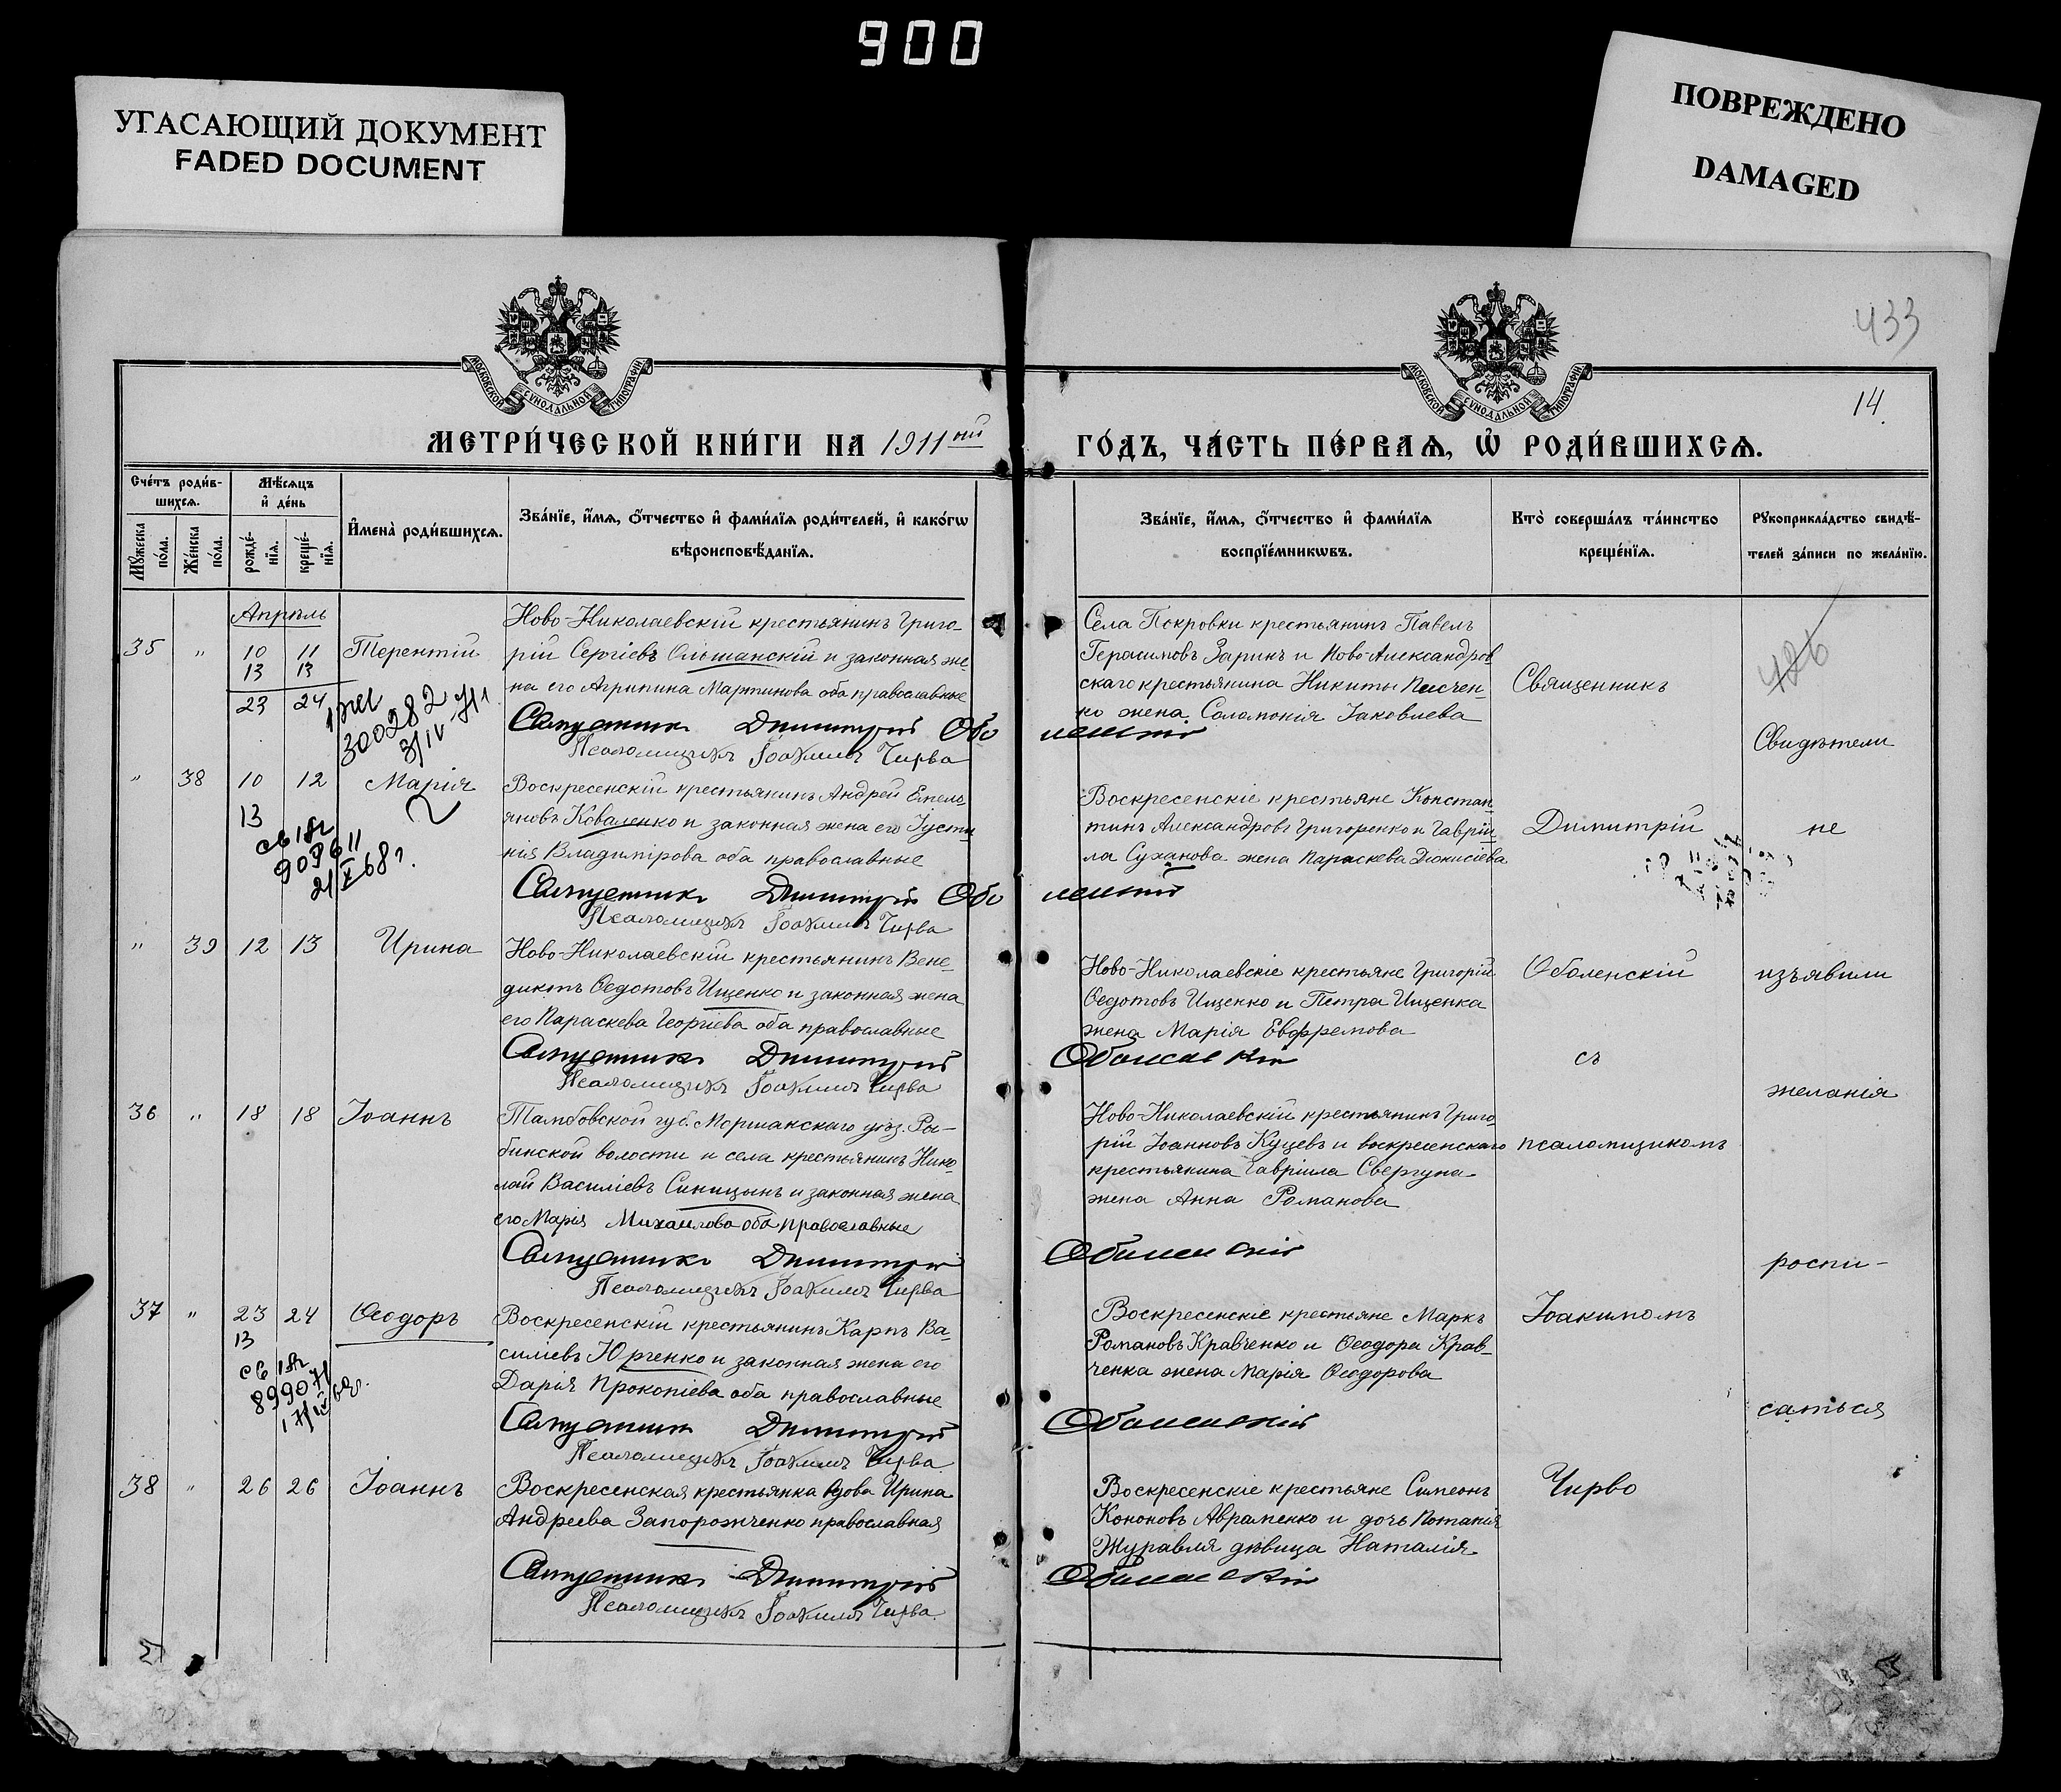 900
УГАСАЮЩИЙ ДОКУМЕНТ
FADED DOCUMENT
ПОВРЕЖДЕНО
DAMAGED
433
14.
МОСКОВСКОЙ СУНОДАЛЬНОЙ ТИПОГРАФІИ
МОСКОВСКОЙ СУНОДАЛЬНОЙ ТИПОГРАФІИ
МЕТРИ́ЧЕСКОЙ КНИ́ГИ НА 1911ый
ГО́ДЪ, ЧА́СТЬ ПЕ́РВАѦ, Ѡ҆ РОДИ́ВШИХСѦ.
Сче́тъ роди́в-
шихсѧ.
Мѣ́сѧцъ
и҆ де́нь
Мꙋ́жеска
по́ла.
Же́нска
по́ла.
рожде́-
нїѧ.
креще́-
нїѧ.
И҆мена̀ роди́вшихсѧ.
Зва́нїе, и҆́мѧ, ѻ҆́тчество и҆ фами́лїѧ роди́телей, и҆ како́гѡ
вѣроисповѣ́данїѧ.
Зва́нїе, и҆́мѧ, ѻ҆́тчество и҆ фами́лїѧ
воспрїе́мникѡвъ.
Кто̀ соверша́лъ та́инство
креще́нїѧ.
Рꙋкоприкла́дство свидѣ́-
телей за́писи по жела́нїю.
Апрѣль
35 " 10 11 Терентій
13 13
23 24
300282
3/IV-71
Ново-Николаевскій крестьянинъ Григо-
рій Сергіевъ Ольшанскій и законная же-
на его Агрипина Мартинова оба православные
Священникъ Димитрій Обо
ленскій
Псаломщикъ Іоакимъ Чирва
Села Покровки крестьянинъ Павелъ
Герасимовъ Заринъ и Ново-Александров
скаго крестьянина Никиты Писчен-
ко жена Соломонія Іаковлева
Священникъ
426
Свидѣтели
" 38 10 12 Марія
13
2
св 18г
21/X 68г.
Воскресенскій крестьянинъ Андрей Емель-
яновъ Коваленко и законная жена его Іусти-
нія Владимірова оба православные
Священникъ Димитрій Обо
ленскій
Псаломщикъ Іоакимъ Чирва
Воскресенскіе крестьяне Констан-
тинъ Александровъ Григоренко и Гаврі-
ла Суханова жена Параскева Діонисіева
Димитрій
не
" 39 12 13 Ирина
Ново-Николаевскій крестьянинъ Вене-
диктъ Ѳедотовъ Ищенко и законная жена
его Параскева Георгіева оба православные
Священникъ Димитрій
Оболенскій
Псаломщикъ Іоакимъ Чирва
Ново-Николаевскіе крестьяне Григорій
Ѳедотовъ Ищенко и Петра Ищенка
жена Марія Евфремова
Оболенскій
изъявили
съ
желанія
36 " 18 18 Іоаннъ
Тамбовской губ. Моршанскаго уѣз. Ры-
бинской волости и села крестьянинъ Нико-
лай Василіевъ Синицынъ и законная жена
его Марія Михаилова оба православные
Священникъ Димитрій
Оболенскій
Псаломщикъ Іоакимъ Чирва
Ново-Николаевскій крестьянинъ Григо-
рій Іоанновъ Куцевъ и воскресенскаго
крестьянина Гавріила Свергуна
жена Анна Романова
псаломщикомъ
роспи-
37 " 23 24 Ѳеодоръ
13
св 18г
899071
Воскресенскій крестьянинъ Карпъ Ва-
силіевъ Юрченко и законная жена его
Дарія Прокопіева оба православные
Священникъ Димитрій
Оболенскій
Псаломщикъ Іоакимъ Чирва
Воскресенскіе крестьяне Маркъ
Романовъ Кравченко и Ѳеодора Крав-
ченка жена Марія Ѳеодорова
Іоакимомъ
саться
38 " 26 26 Іоаннъ
Воскресенская крестьянка вдова Ирина
Андреева Запорожченко православная
Священникъ Димитрій
Оболенскій
Псаломщикъ Іоакимъ Чирва
Воскресенскіе крестьяне Симеонъ
Кононовъ Авраменко и дочь Потапія
Журавля дѣвица Наталія
Чирво